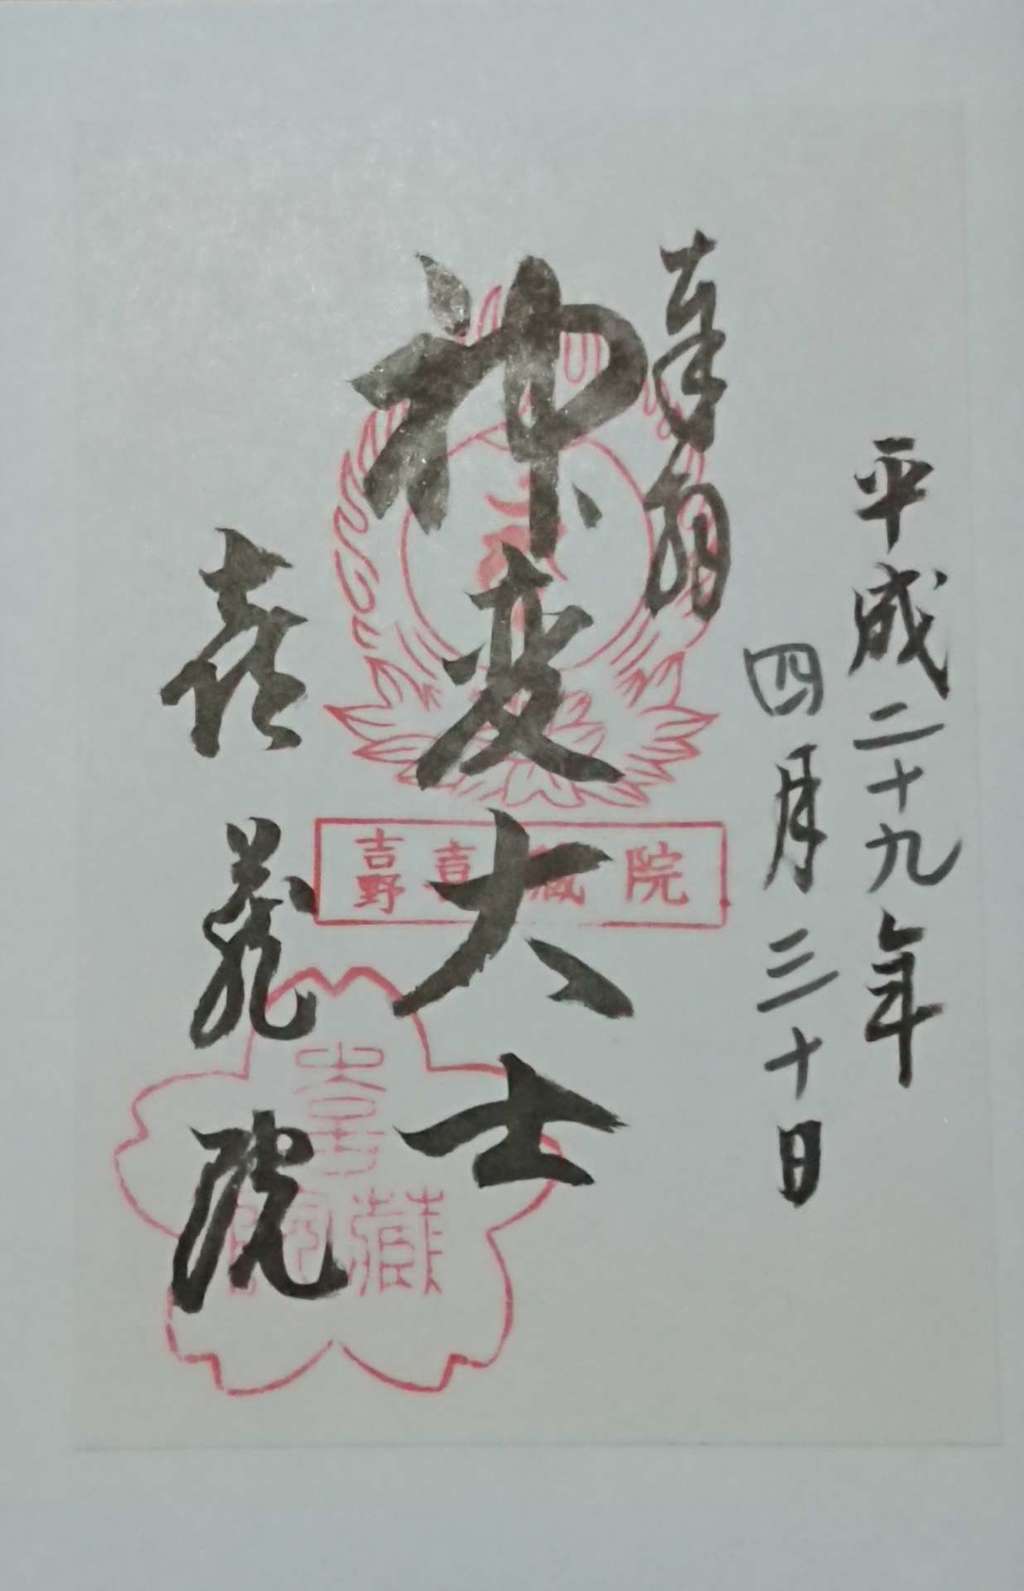 平成二十九年
四月三十日
奉拝
神変大士
喜蔵院
吉野 喜蔵院
喜蔵院